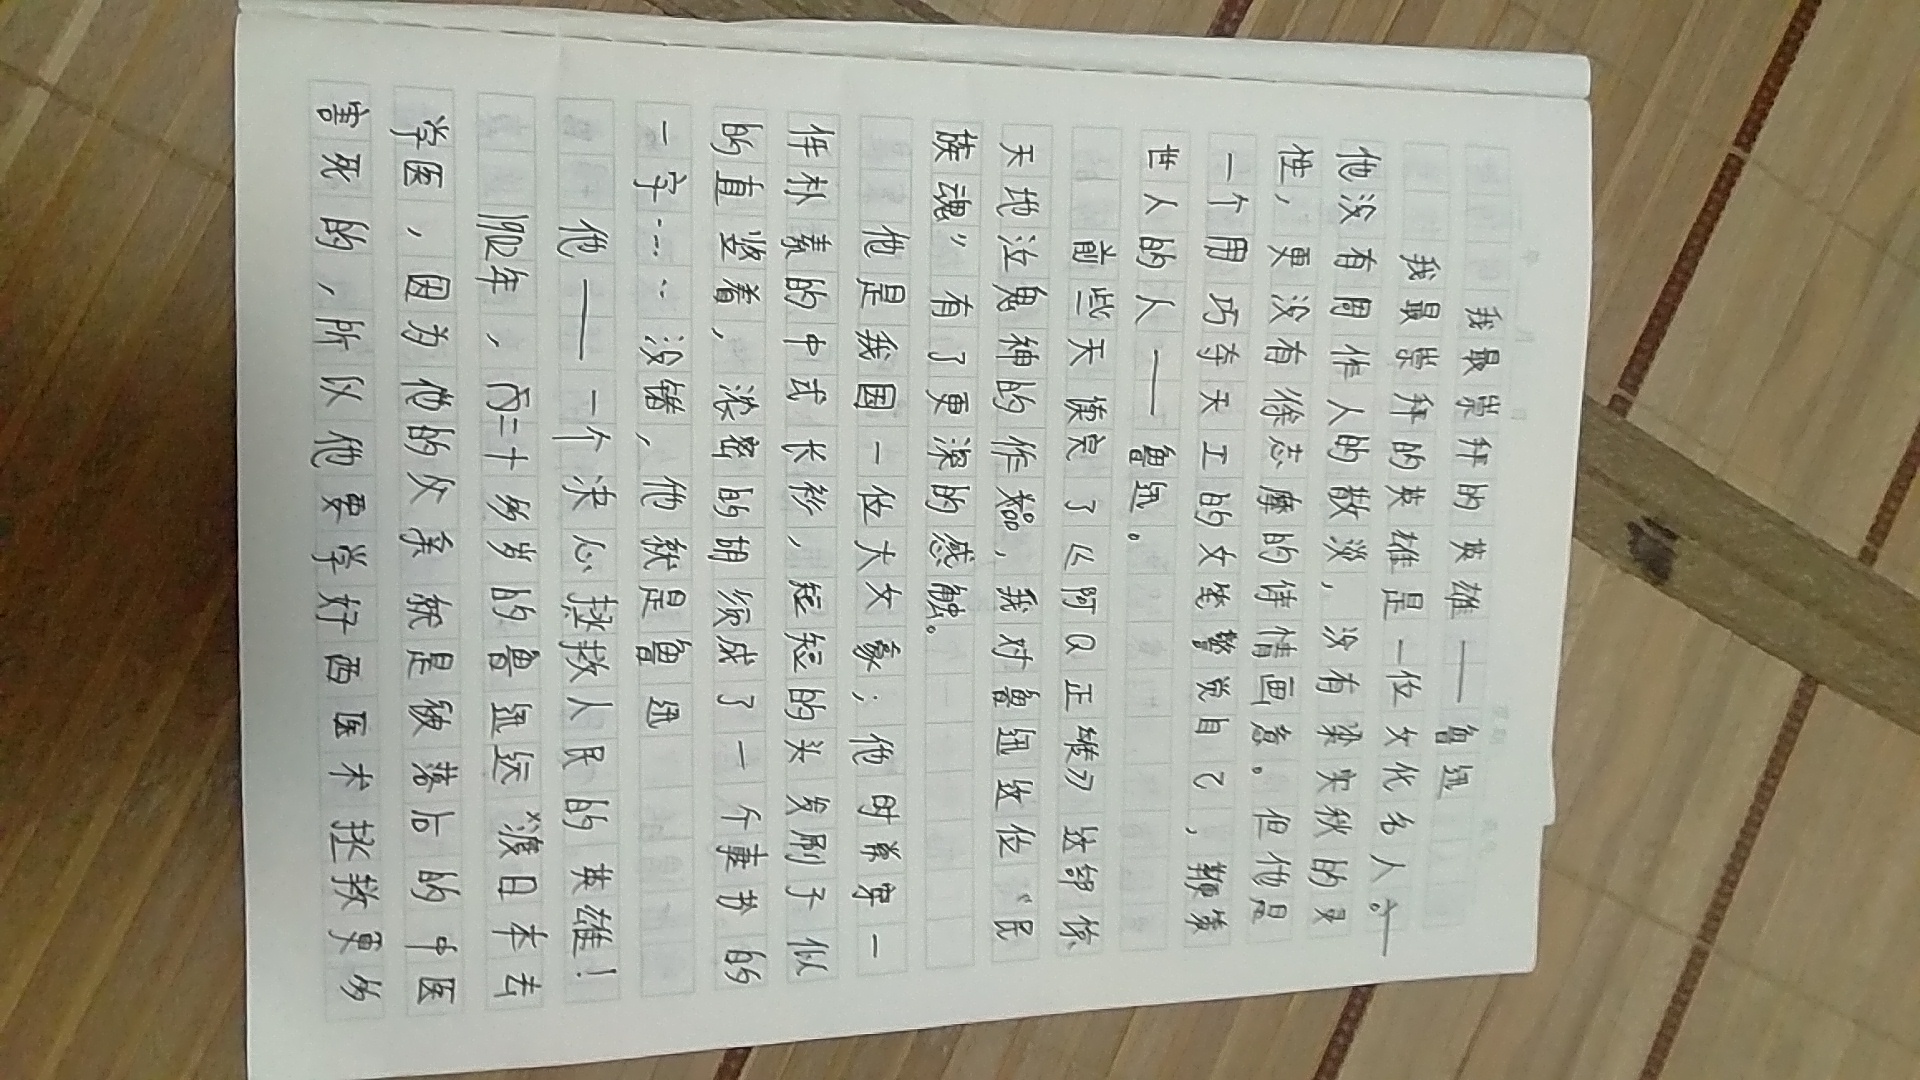 我最崇拜的英雄——鲁迅
我最崇拜的英雄是一位文化名人。
他没有周作人的散淡，没有梁实秋的灵
性，更没有徐志摩的诗情画意。但他是
一个用巧夺天工的文笔警觉自己，鞭策
世人的人——鲁迅。
前些天读完了《阿Q正传》这部惊
天地泣鬼神的作品，我对鲁迅这位“民
族魂”有了更深的感触。
他是我国一位大文豪；他时常穿一
件朴素的中式长衫，短短的头发刷子似
的直竖着，浓密的胡须成了一个隶书的
一字……没错，他就是鲁迅
他——一个决心拯救人民的英雄！
1902年，而二十多岁的鲁迅远渡日本去
学医，因为他的父亲就是被落后的中医
害死的，所以他要学好西医术拯救更多